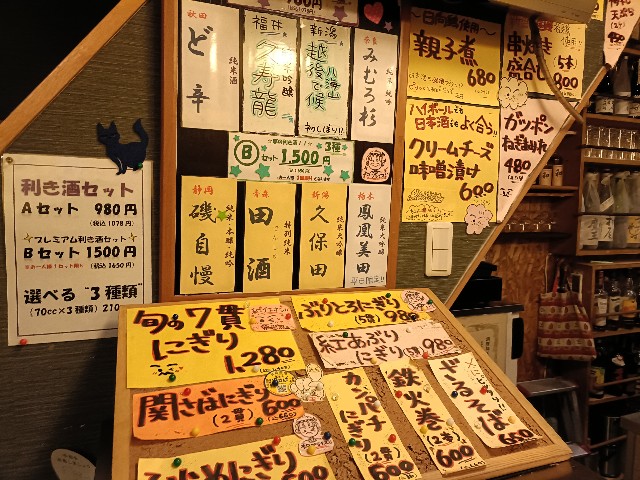 利き酒セット
Aセット 980円
(税込1078円)
☆プレミアム利き酒セット☆
Bセット 1500円
(税込1650円)
選べる"3種類"
(70cc×3種類)210
秋田
ど辛
純米酒
福井
久寿龍
吟醸
新潟
越後で候
八海山
しぼり!!
奈良
みむろ杉
純米吟
B
セット
1,500円
3種
静岡
磯自慢
青森
田酒
特別純米
新潟
久保田
純米大吟醸
栃木
鳳凰美田
純米大吟醸
親子煮
680
串焼き
盛合し
(5本)
900
ハイボールでも
日本酒でもよく合う!!
クリームチーズ
味噌漬け
600
ガツポン
ねぎまみれ
480
旬の7貫
にぎり
1,280
ぶりとろにぎり
(5貫)980
紅あぶり
にぎり
980
関さばにぎり
(2貫)600
カンパチ
にぎり
(2貫)
600
鉄火巻
(2本)
600
ざるそば
650
にぎり
600